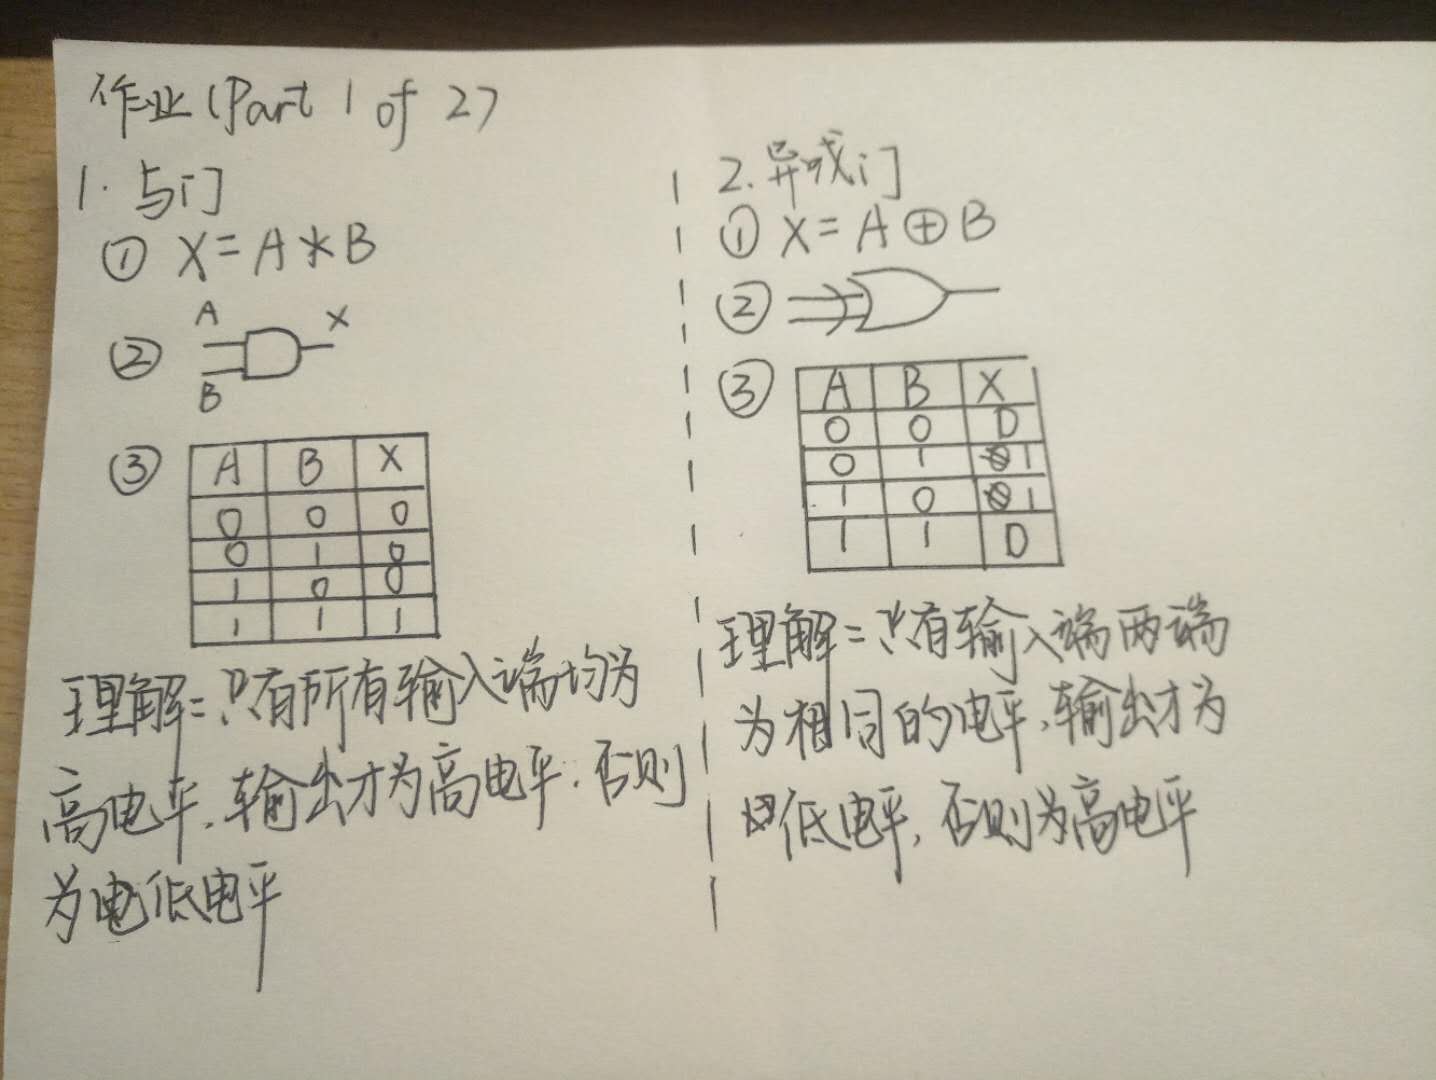 作业(Part 1 of 2)
1. 与门
① X = A * B
②
A
X
B
③
A B X
0 0 0
0 1 0
1 0 0
1 1 1
理解=只有所有输入端均为
高电平,输出才为高电平.否则
为低电平
2. 异或门
① X = A ⊕ B
②
③
A B X
0 0 0
0 1 1
1 0 1
1 1 0
理解=只有输入端两端
为相同的电平,输出才为
低电平,否则为高电平